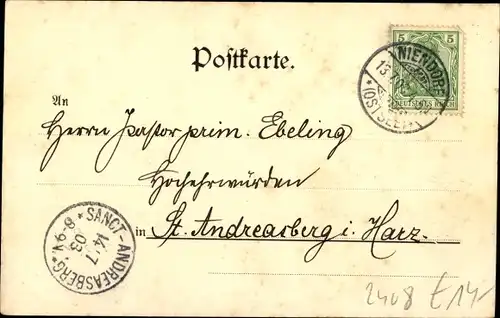 Postkarte.
5 5
DEUTSCHES REICH
NIENDORF
(OSTSEE)
An
Herrn Pastor prim. Ebeling
Hochehrwürden
in St. Andreasberg i. Harz.
SANCT-ANDREASBERG
14/7
03
8-9V.
2408 E14-